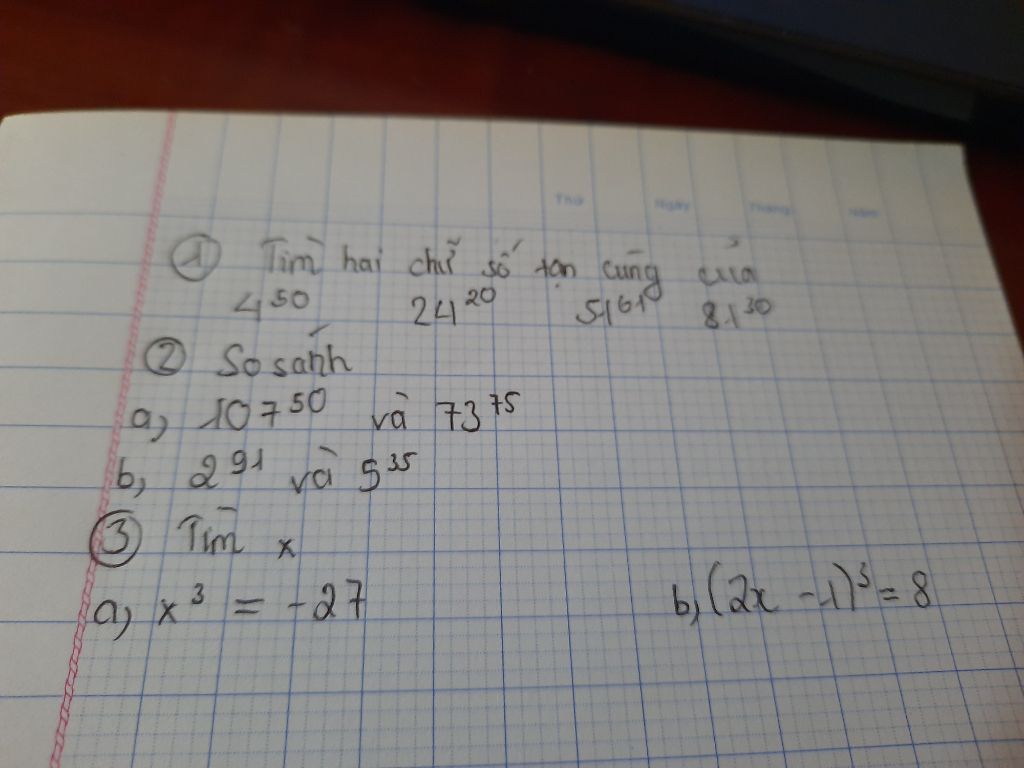 Thứ Ngày Tháng Năm
① Tìm hai chữ số tận cùng của
4⁵⁰ 24²⁰ 51⁶¹ 81³⁰
② So sánh
a, 107⁵⁰ và 73⁷⁵
b, 2⁹¹ và 5³⁵
③ Tìm x
a, x³ = -27 b, (2x - 1)³ = 8